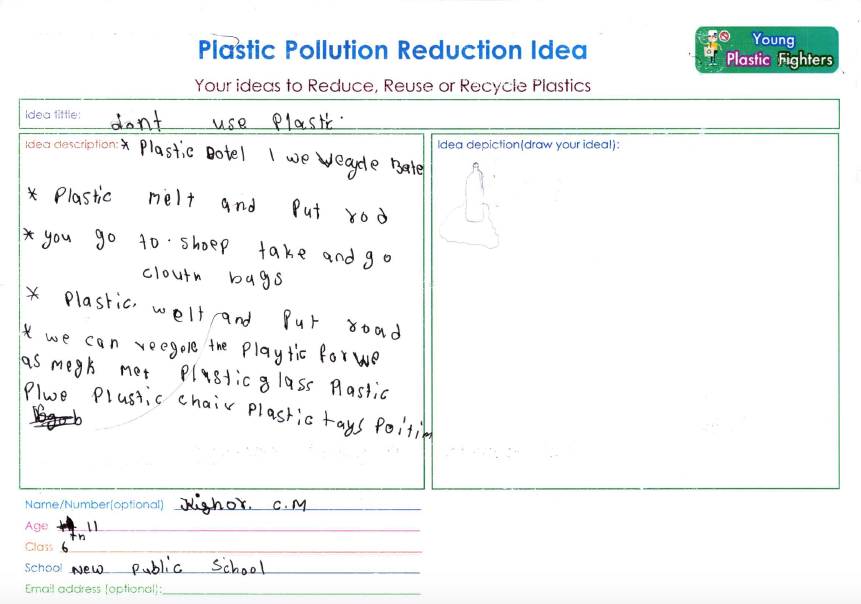 Plastic Pollution Reduction Idea
Young
Plastic Fighters
Your ideas to Reduce, Reuse or Recycle Plastics
Idea tittle: dont use Plastic.
Idea description: * Plastic Botel we
* Plastic melt and Put rod
* you go to. shoep take and go
clouth bags
* Plastic. welt and Put road
* we can the for we
as Plastic glass Plastic
Plastic chair Plastic
Idea depiction(draw your idea!):
Name/Number(optional) Kishor. C.M
Age 11
Class 6th
School New Public School
Email address (optional):